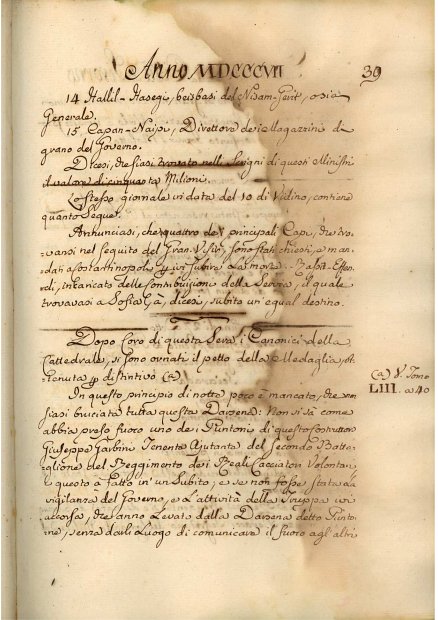 Anno MDCCCVII
39
14 Hallil-Hasegi, beisbasi del Nisam-Gerit, o sia
Generale.
15. Capan-Naipi, Direttore de i Magazzini di
grano del Governo.
Dicesi, che siasi trovato nelle Scrigni di questi Ministri
il valore di cinquanta Milioni.
Lo stesso giornale in data del 10 di Vidino, contiene
quanto Segue.
Annunciasi, che quattro de i principali Capi, che tro-
vansi nel seguito del Gran-Visir, sono stati chiesti, e man-
dati a Costantinopoli p ivi subire la morte. Effen-
di, incaricato delle Contribuzioni della Servia, il quale
trovavasi a Sofia, à, dicesi, subito un egual destino.
Dopo Coro di questa Sera i Canonici della
Cattedrale, si sono ornati il petto della Medaglia, ot-
tenuta p distintivo (a)
(a) V. Tomo
LIII. a 40
In questo principio di notte poco è mancato, che non
siasi bruciata tutta questa Darsena: Non si sà come
abbia preso fuoco uno de i Pontoni di questo costruttore
Giuseppe Garbin Tenente Ajutante del Secondo Batta-
glione del Reggimento de i Reali Cacciatori Volontari
e questo à fatto in un Subito, e se non fosse stata la
vigilanza del Governo, e l'attività della Truppa ivi
accorsa, che anno levato dalla Darsena detto Ponto-
ne, senza darli luogo di comunicare il fuoco agl'altri